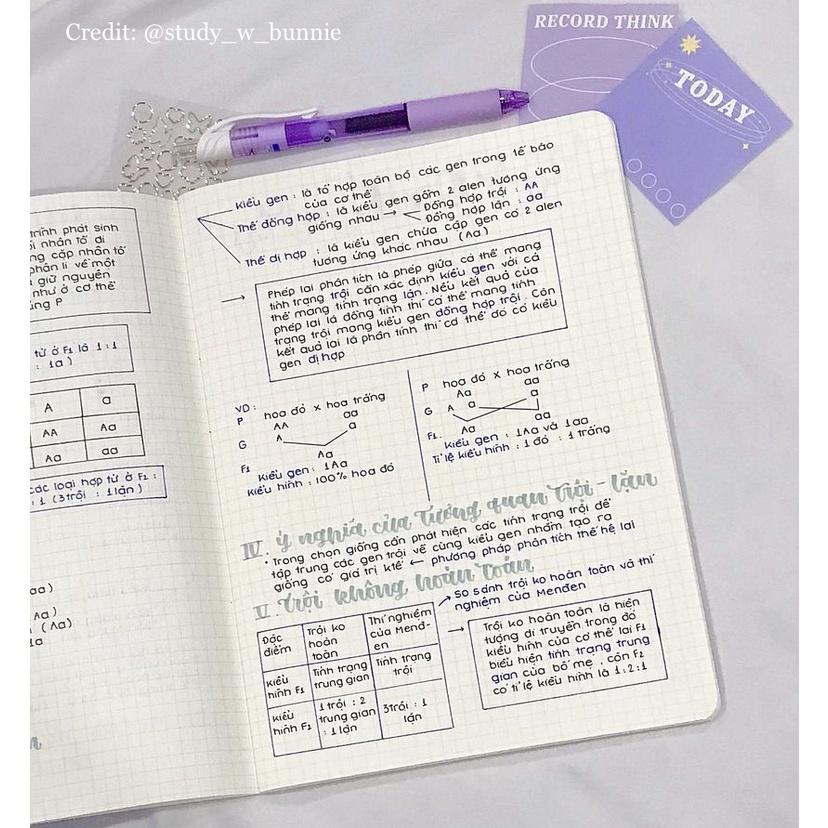 Credit: @study_w_bunnie
RECORD THINK
TODAY
trình phát sinh
nhân tố di
ng cặp nhân tố
phân li về một
giữ nguyên
như ở cơ thể
P
tử ở F1 là 1:1
: 1a)
A a
AA Aa
Aa aa
các loại hợp tử ở F2:
: 1 (3 trội : 1 lặn)
aa)
Aa)
(Aa)
1a
Kiểu gen : là tổ hợp toàn bộ các gen trong tế bào
của cơ thể
Thể đồng hợp : là kiểu gen gồm 2 alen tương ứng
giống nhau → Đồng hợp trội : AA
Đồng hợp lặn : aa
Thể dị hợp : là kiểu gen chứa cặp gen có 2 alen
tương ứng khác nhau (Aa)
→ Phép lai phân tích là phép giữa cá thể mang
tính trạng trội cần xác định kiểu gen với cá
thể mang tính trạng lặn. Nếu kết quả của
phép lai là đồng tính thì cá thể mang tính
trạng trội mang kiểu gen đồng hợp trội. Còn
kết quả lai là phân tính thì cơ thể đó có kiểu
gen dị hợp
VD:
P hoa đỏ x hoa trắng
AA aa
G A a
F1 Aa
Kiểu gen : 1Aa
Kiểu hình : 100% hoa đỏ
P hoa đỏ x hoa trắng
Aa aa
G A a a
F1. Aa aa
Kiểu gen : 1Aa và 1aa
Tỉ lệ kiểu hình : 1 đỏ : 1 trắng
IV. Ý nghĩa của tương quan trội - lặn
• Trong chọn giống cần phát hiện các tính trạng trội để
tập trung các gen trội về cùng kiểu gen nhằm tạo ra
giống có giá trị ktế ← phương pháp phân tích thế hệ lai
V. Trội không hoàn toàn
→ So sánh trội ko hoàn toàn và thí
nghiệm của Menđen
Đặc điểm
Trội ko hoàn toàn
Thí nghiệm của Menđ-en
Kiểu hình F1
Tính trạng trung gian
Tính trạng trội
Kiểu hình F2
1 trội : 2 trung gian : 1 lặn
3 trội : 1 lặn
→ Trội ko hoàn toàn là hiện
tượng di truyền trong đó
kiểu hình của cơ thể lai F1
biểu hiện tính trạng trung
gian của bố mẹ, còn F2
có tỉ lệ kiểu hình là 1:2:1